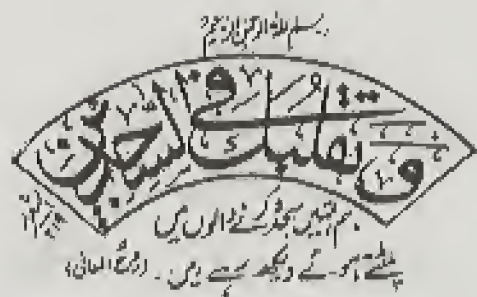 بسم اللہ الرحمن الرحیم
وَتَقَلُّبَكَ فِي السَّاجِدِينَ
ہم تمہیں سجدہ کرنے والوں میں
پلٹتے ہوئے دیکھ رہے ہیں۔ (روح المعانی)